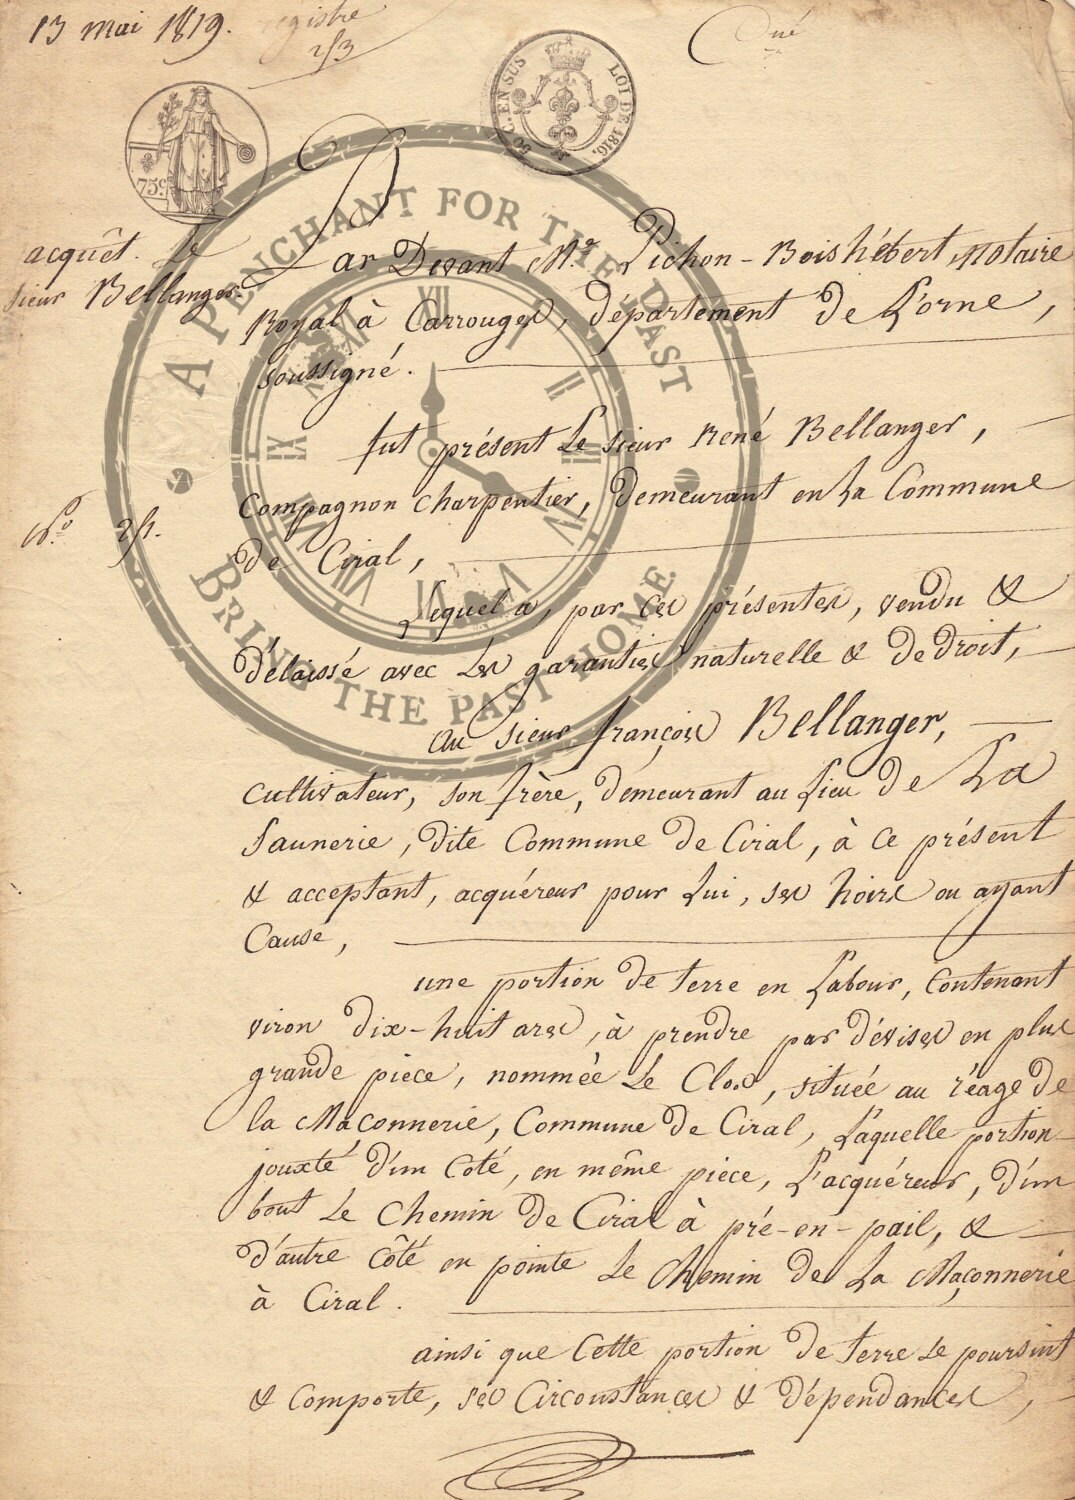 13 mai 1819.
registre
50 C. EN SUS
LOI DE 1816.
75c
A PENCHANT FOR THE PAST
BRING THE PAST HOME
XII I II III IV V VI VII VIII IX X XI
acquêt. Le
sieur Bellanger.
Par Devant Me. Pichon-Boishébert, Notaire
Royal à Carrouges, département de L'orne,
soussigné.
fut présent Le sieur René Bellanger,
Compagnon charpentier, demeurant en La Commune
de Ciral,
Lequel a, par ces présentes, vendu &
délaissé avec Les garanties naturelle & de droit,
au sieur françois Bellanger,
cultivateur, son frère, demeurant au Lieu de La
Saunerie, dite Commune de Ciral, à ce présent
& acceptant, acquéreur pour Lui, ses hoirs ou ayant
Cause,
une portion de terre en Labour, Contenant
viron dix-huit ares, à prendre par dévises en plus
grande pièce, nommée Le Clos, située au réage de
la Maconnerie, Commune de Ciral, Laquelle portion
jouxte d'un Coté, en même pièce, L'acquéreur, d'un
bout Le Chemin de Ciral à pré-en-pail, &
d'autre Côté en pointe Le Chemin de La Maçonnerie
à Ciral.
ainsi que Cette portion de terre se poursuit
& Comporte, ses Circonstances & dépendances,